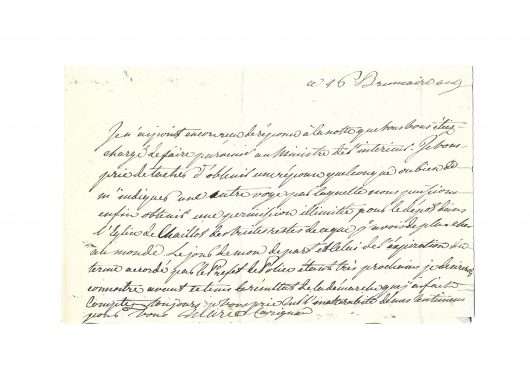 ce 16 Brumaire an 9
Je n'ai point encore reçu de réponse à la notte que vous vous étiez
chargé de faire parvenir au Ministre de l'interieur. Je vous
prie de tacher d'obtenir une réponse quelconque ou bien de
m'indiquer une autre voye par laquelle nous puissions
enfin obtenir une permission illimitée pour le dépôt dans
l'Eglise de Chaillot des tristes restes de ce que j'avois de plus cher
au monde Le jour de mon depart et celui de l'expiration du
terme accordé par le Préfet de Police étant très prochains je désirerois
connoitre avant ce tems le resultat de la démarche que j'ai faite
Comptez toujours je vous prie sur l'inalterabilité de mes sentimens
pour vous Carignan